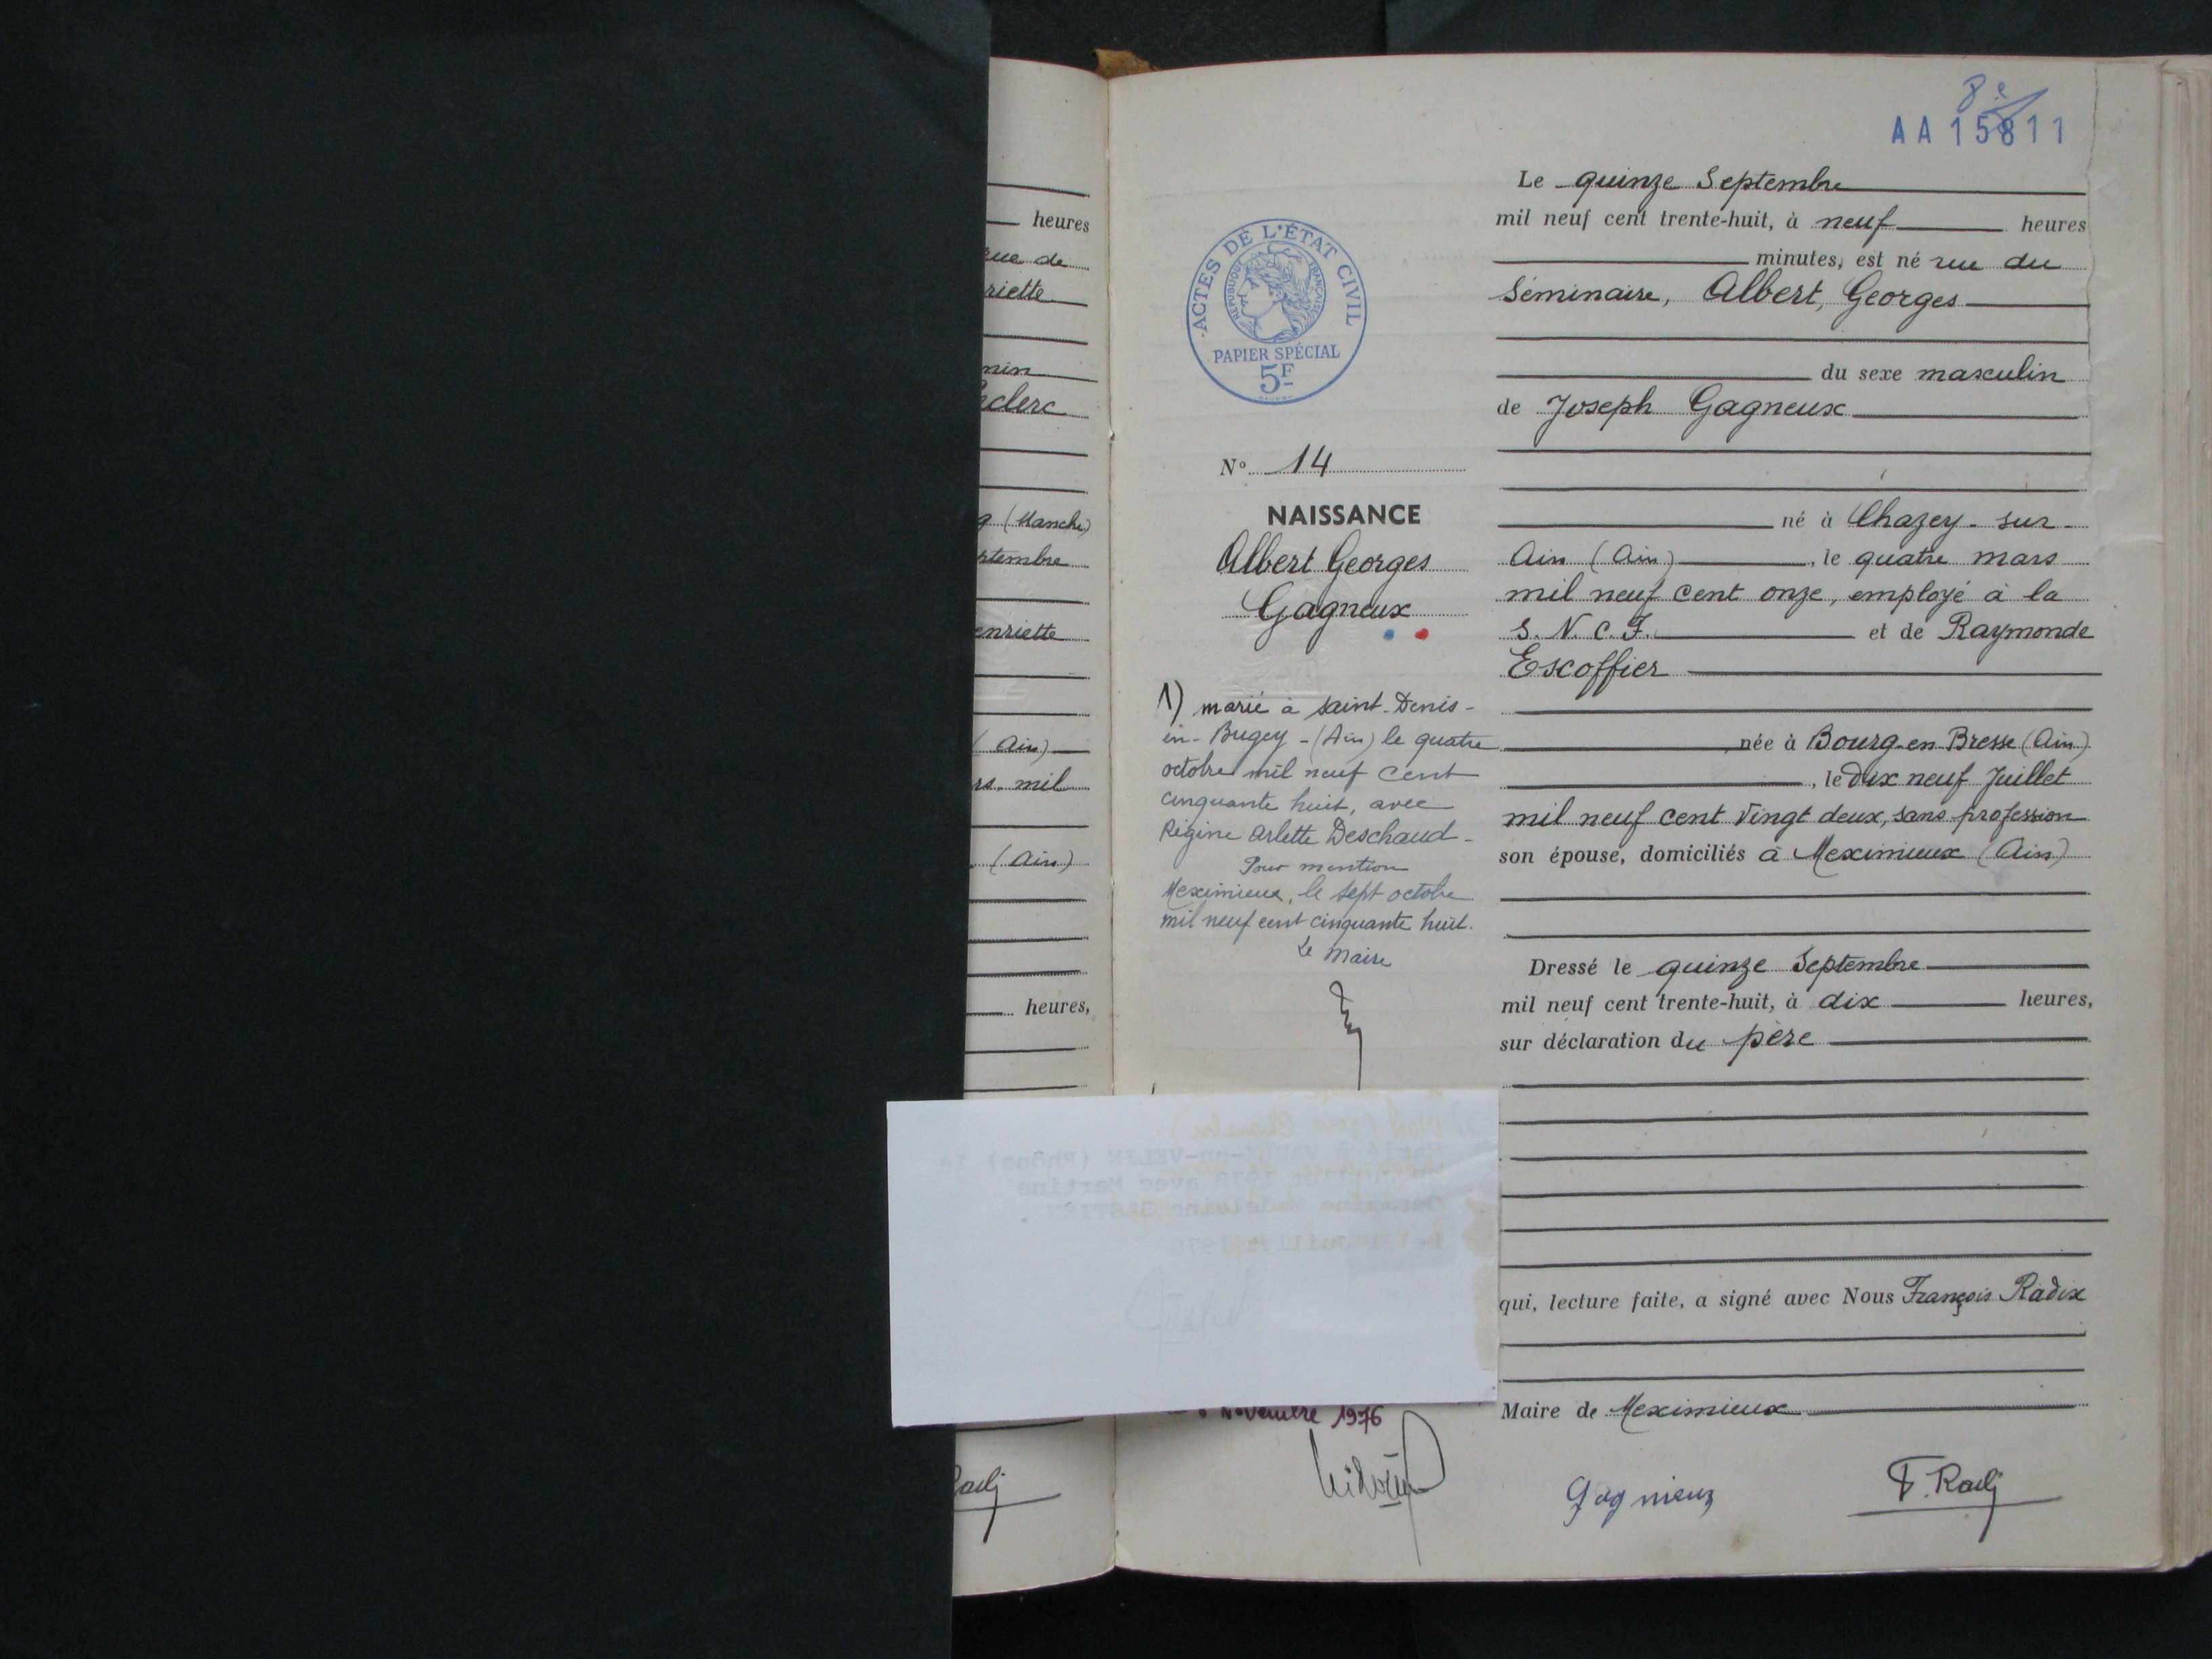 heures
rue de
riette
min
clerc
(Manche)
ptembre
enriette
(Ain)
rs. mil
(Ain)
heures,
8e
AA 15811
ACTES DE L'ÉTAT CIVIL
RÉPUBLIQUE FRANÇAISE
PAPIER SPÉCIAL
5F
N° 14
NAISSANCE
Albert Georges
Gagneux
1) marié à Saint-Denis-
en-Bugey-(Ain) le quatre
octobre mil neuf cent
cinquante huit, avec
Régine Arlette Deschaud-
Pour mention
Meximieux, le sept octobre
mil neuf cent cinquante huit.
Le Maire
Novembre 1976
Le quinze Septembre
mil neuf cent trente-huit, à neuf heures
minutes, est né rue du
Séminaire, Albert, Georges
du sexe masculin
de Joseph Gagneux
né à Chazey-sur-
Ain (Ain), le quatre mars
mil neuf cent onze, employé à la
S.N.C.F. et de Raymonde
Escoffier
née à Bourg-en-Bresse (Ain)
, le Dix neuf Juillet
mil neuf cent vingt deux, sans profession
son épouse, domiciliés à Meximieux (Ain)
Dressé le quinze Septembre
mil neuf cent trente-huit, à dix heures,
sur déclaration du père
qui, lecture faite, a signé avec Nous François Radix
Maire de Meximieux
Gagnieux
F. Radix